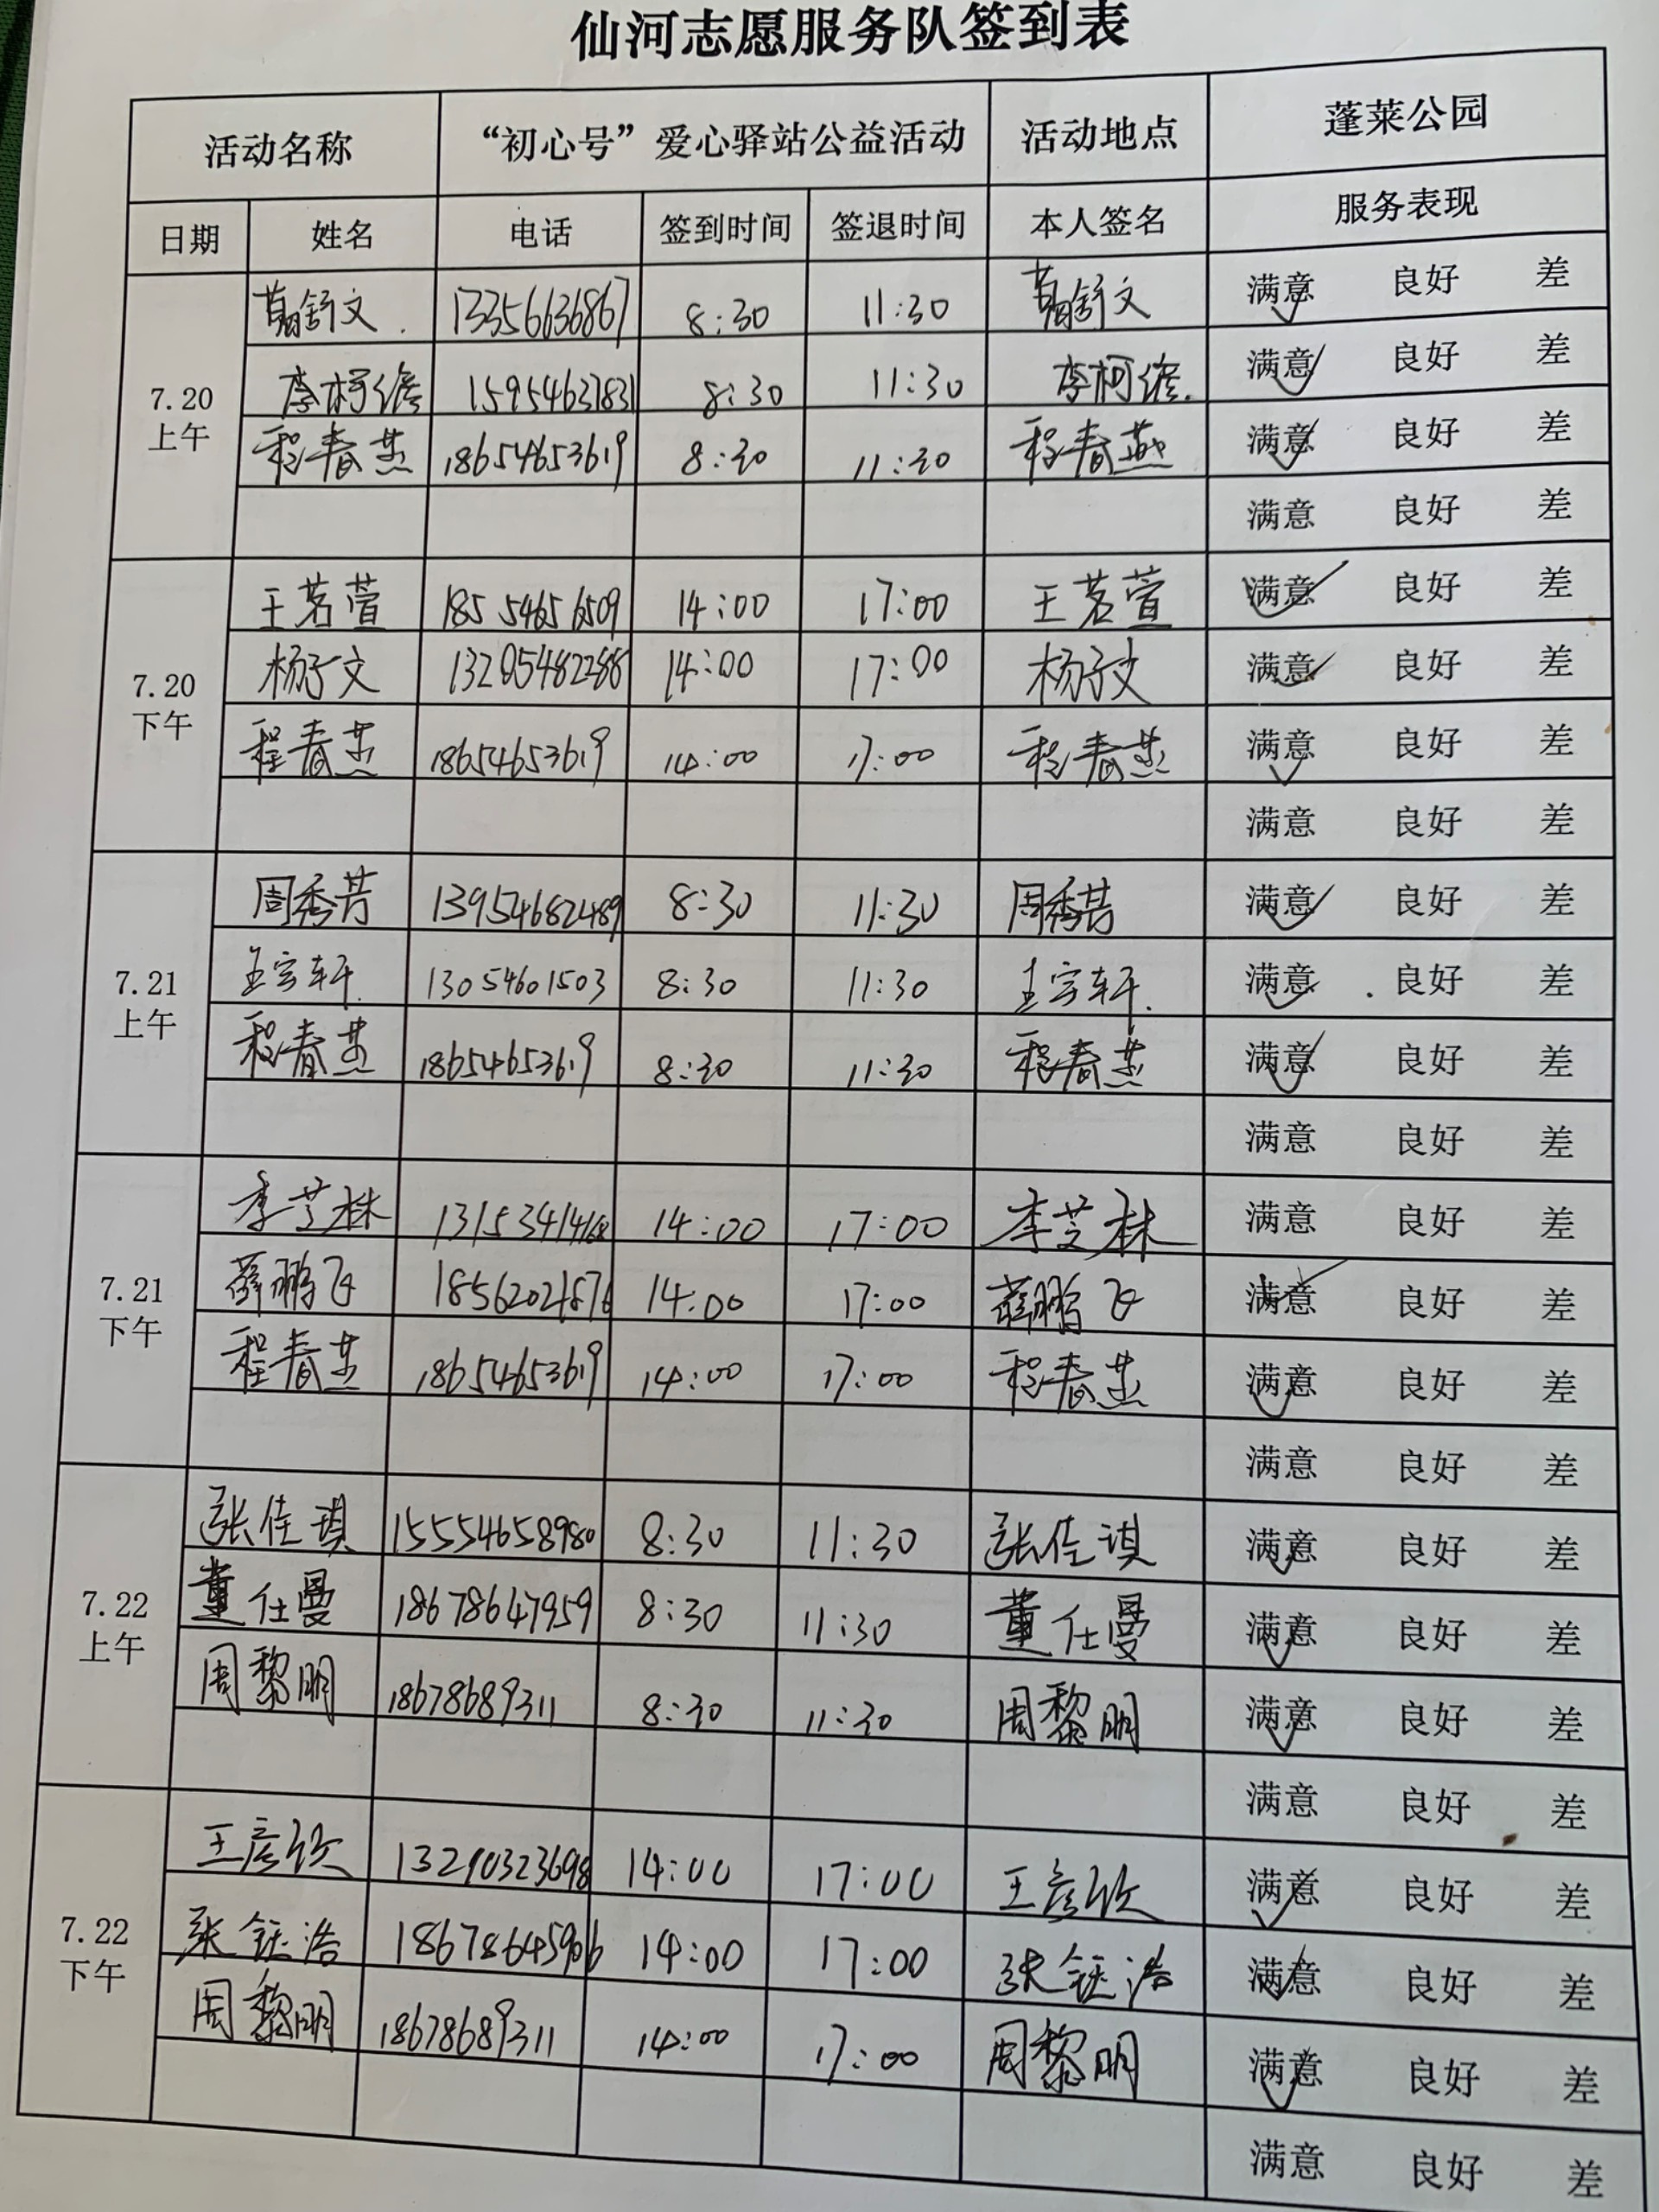 仙河志愿服务队签到表
活动名称 “初心号”爱心驿站公益活动 活动地点 蓬莱公园
日期 姓名 电话 签到时间 签退时间 本人签名 服务表现
7.20 上午
舒文 13356636867 8:30 11:30 舒文 满意 良好 差
李柯 15954637831 8:30 11:30 李柯 满意 良好 差
程春燕 18654653619 8:30 11:30 程春燕 满意 良好 差
满意 良好 差
7.20 下午
王茗萱 18554656509 14:00 17:00 王茗萱 满意 良好 差
杨子文 13205482288 14:00 17:00 杨子文 满意 良好 差
程春燕 18654653619 14:00 17:00 程春燕 满意 良好 差
满意 良好 差
7.21 上午
周秀芳 13954682489 8:30 11:30 周秀芳 满意 良好 差
孟宇轩 13054601503 8:30 11:30 孟宇轩 满意 良好 差
程春燕 18654653619 8:30 11:30 程春燕 满意 良好 差
满意 良好 差
7.21 下午
李芝林 13153414168 14:00 17:00 李芝林 满意 良好 差
薛鹏飞 18562024876 14:00 17:00 薛鹏飞 满意 良好 差
程春燕 18654653619 14:00 17:00 程春燕 满意 良好 差
满意 良好 差
7.22 上午
张佳琪 15554658980 8:30 11:30 张佳琪 满意 良好 差
董仕曼 18678647959 8:30 11:30 董仕曼 满意 良好 差
周黎明 18678689311 8:30 11:30 周黎明 满意 良好 差
满意 良好 差
7.22 下午
王彦欣 13290323698 14:00 17:00 王彦欣 满意 良好 差
张钰浩 18678645906 14:00 17:00 张钰浩 满意 良好 差
周黎明 18678689311 14:00 17:00 周黎明 满意 良好 差
满意 良好 差